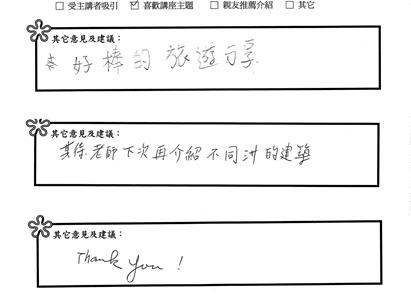 □ 受主講者吸引 ☑ 喜歡講座主題 □ 親友推薦介紹 □ 其它
其它意見及建議：
好棒的旅遊分享
其它意見及建議：
老師下次再介紹不同洲的建築
其它意見及建議：
Thank you !